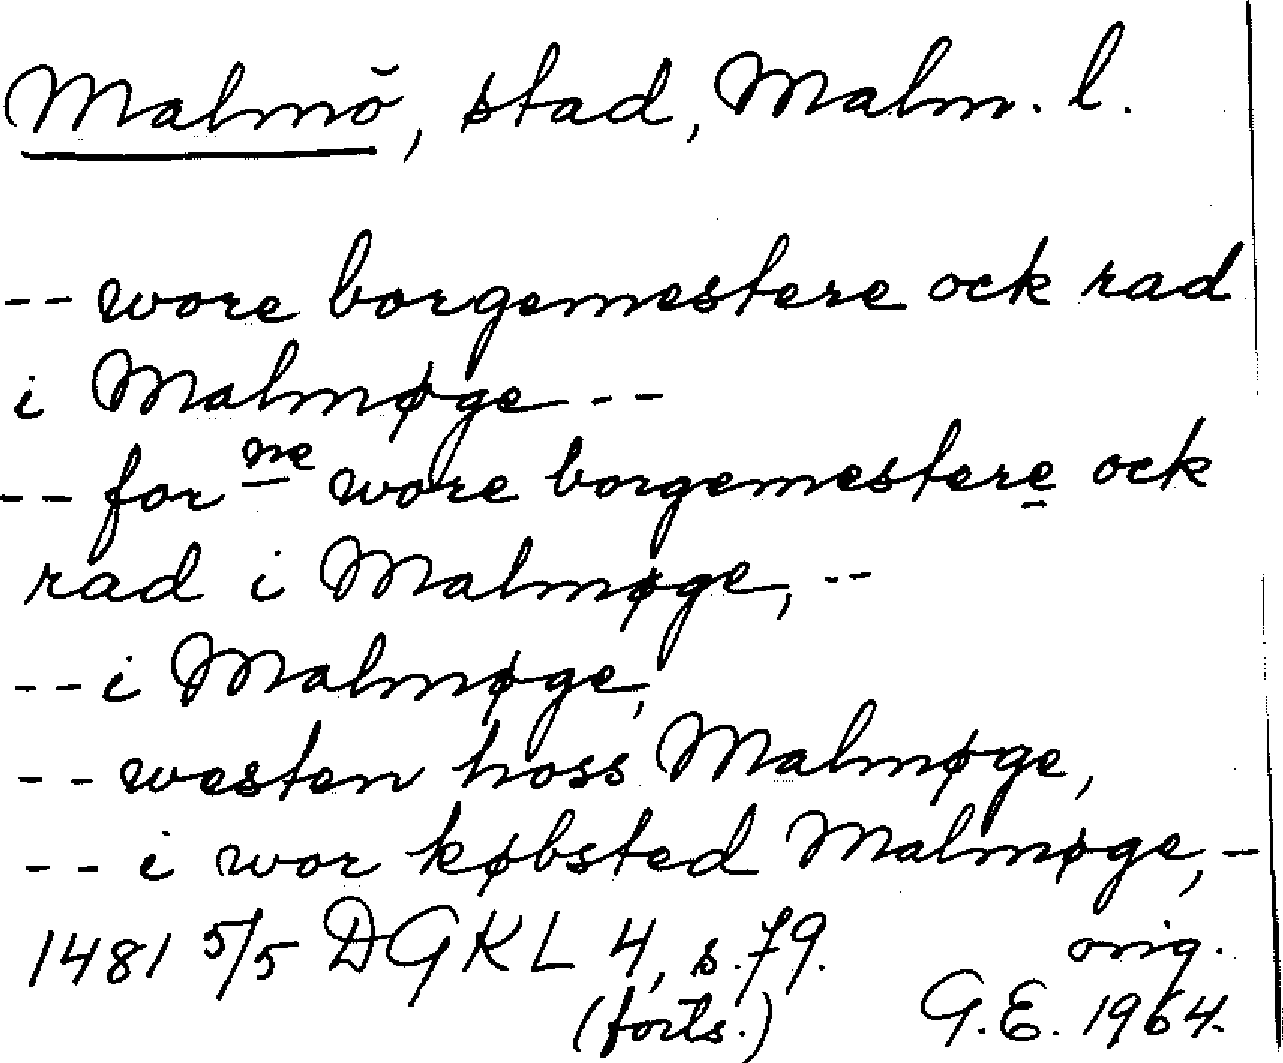 Malmö, stad, Malm. l.
-- wore borgemestere ock rad
i Malmøge ---
-- for ne wore borgemestere ock
rad i Malmøge, --
-- i Malmøge,
-- westen hoss Malmøge,
-- i wor købsted Malmøge, -
1481 5/5 DGKL 4, s. 79. orig.
(forts.) G.E. 1964.